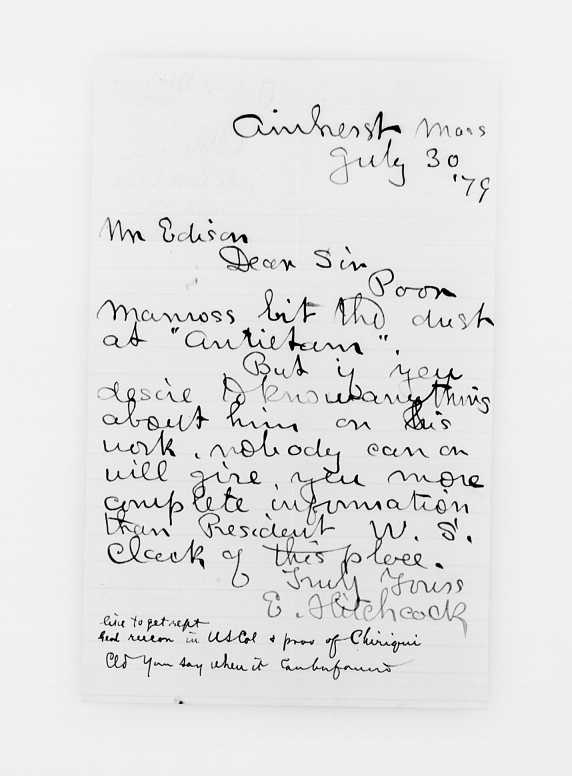 Amherst Mass
July 30
'79
Mr Edison
Dear Sir
Poor
Manross bit the dust
at "Antietam".
But if you
desire to know anything
about him or his
work, nobody can or
will give, you more
complete information
than President W. S.
Clark of this place.
Truly Yours
E. Hitchcock
like to get rept
Geol recon in US Col & prov of Chiriqui
Cld you say where it can be found